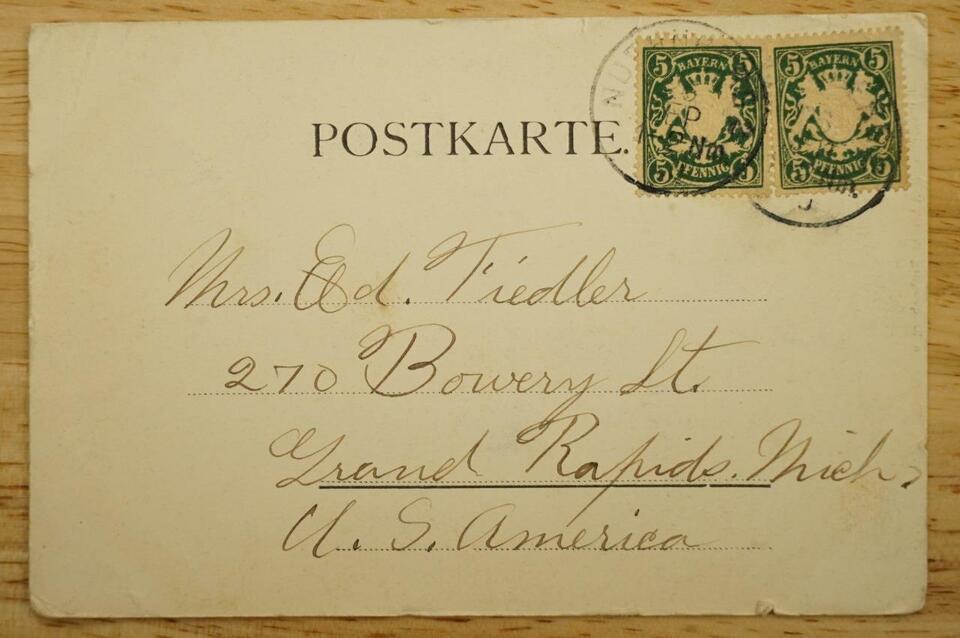 POSTKARTE.
5 BAYERN 5
5 PFENNIG 5
5 BAYERN 5
5 PFENNIG 5
Mrs. Ed. Tiedler
270 Bowery St.
Grand Rapids. Mich.
U. S. America